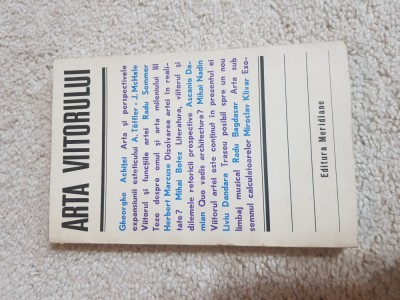 ARTA VIITORULUI
Gheorghe Achiței Arta și perspectivele
expansiunii esteticului A. Toffler - J. McHale
Viitorul și funcțiile artei Radu Sommer
Teze despre omul și arta mileniului III
Herbert Marcuse Dizolvarea artei în reali-
tate? Mihai Botez Literatura, viitorul și
dilemele retoricii prospective Ascanio Da-
mian Quo vadis architectura? Mihai Nadin
Viitorul artei este conținut în prezentul ei
Liviu Dandara Traseu posibil spre un nou
limbaj muzical Radu Bagdasar Arta sub
semnul calculatoarelor Miroslav Klivar Exo-
Editura Meridiane